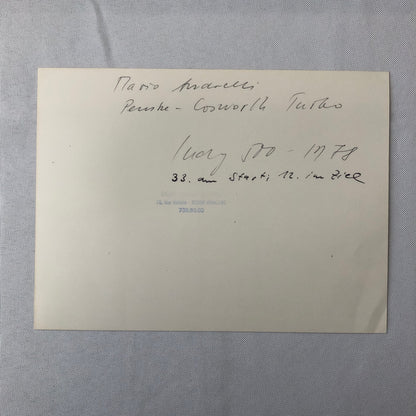 Mario Andretti
Penske - Cosworth Turbo
Indy 500 - 1978
33. am Start, 12. im Ziel